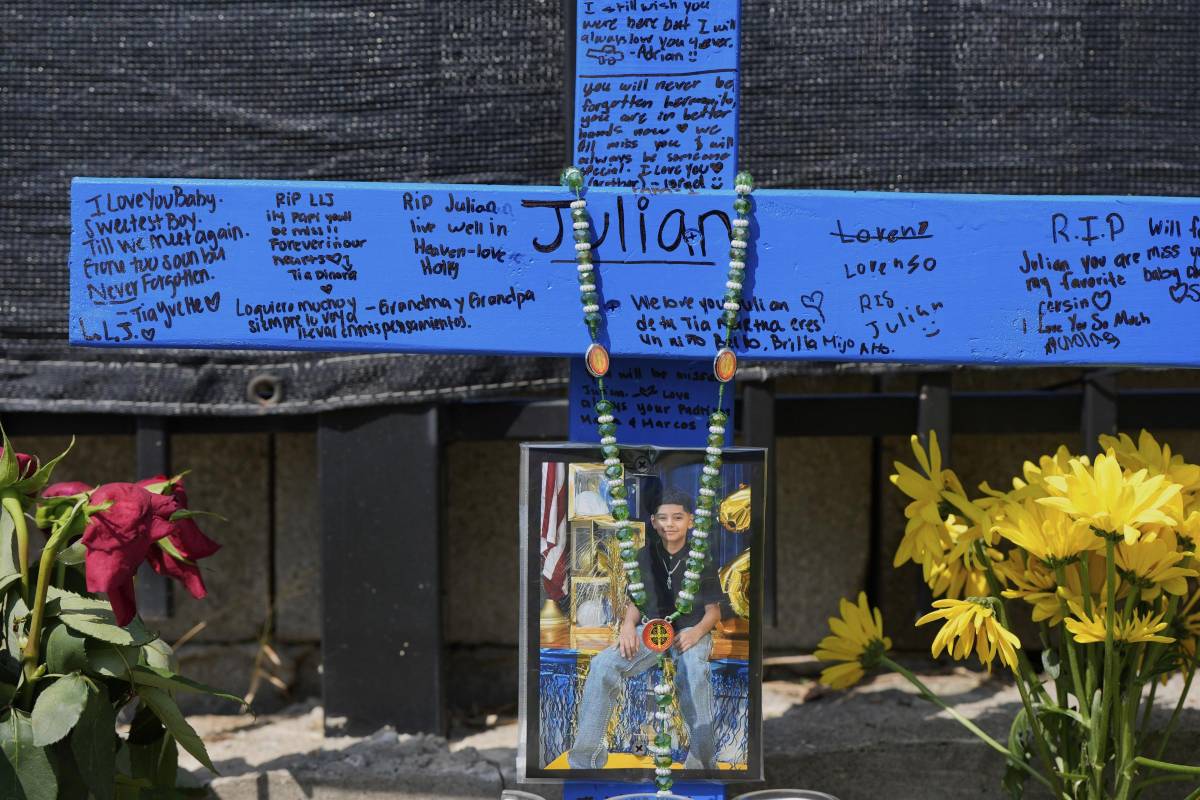 I still wish you
were here but I will
always love you 4ever.
-Adrian
you will never be
forgotten hermanito,
you are in better
hands now we
all miss you & will
always be someone
special. I Love You
(brother) - Israel
I Love You Baby.
Sweetest Boy.
Till we meet again.
Gone too soon but
Never Forgotten.
-Tia Yvette
L.L.J.
RIP LLJ
ily Papi you'll
be miss!!
Forever in our
hearts
Tia Dinora
RIP Julian
live well in
Heaven-love
Holly
Julian
Lo quiero mucho y
siempre lo voy a
llevar en mis pensamientos.
-Grandma y Grandpa
We love you Julian
de tu Tia Martha eres
un niño Bello, Brilla Mijo
Lorenso
RIS
Julian
R.I.P
Julian you are
my favorite baby
I Love You So Much
will be
Love
always your
& Marcos